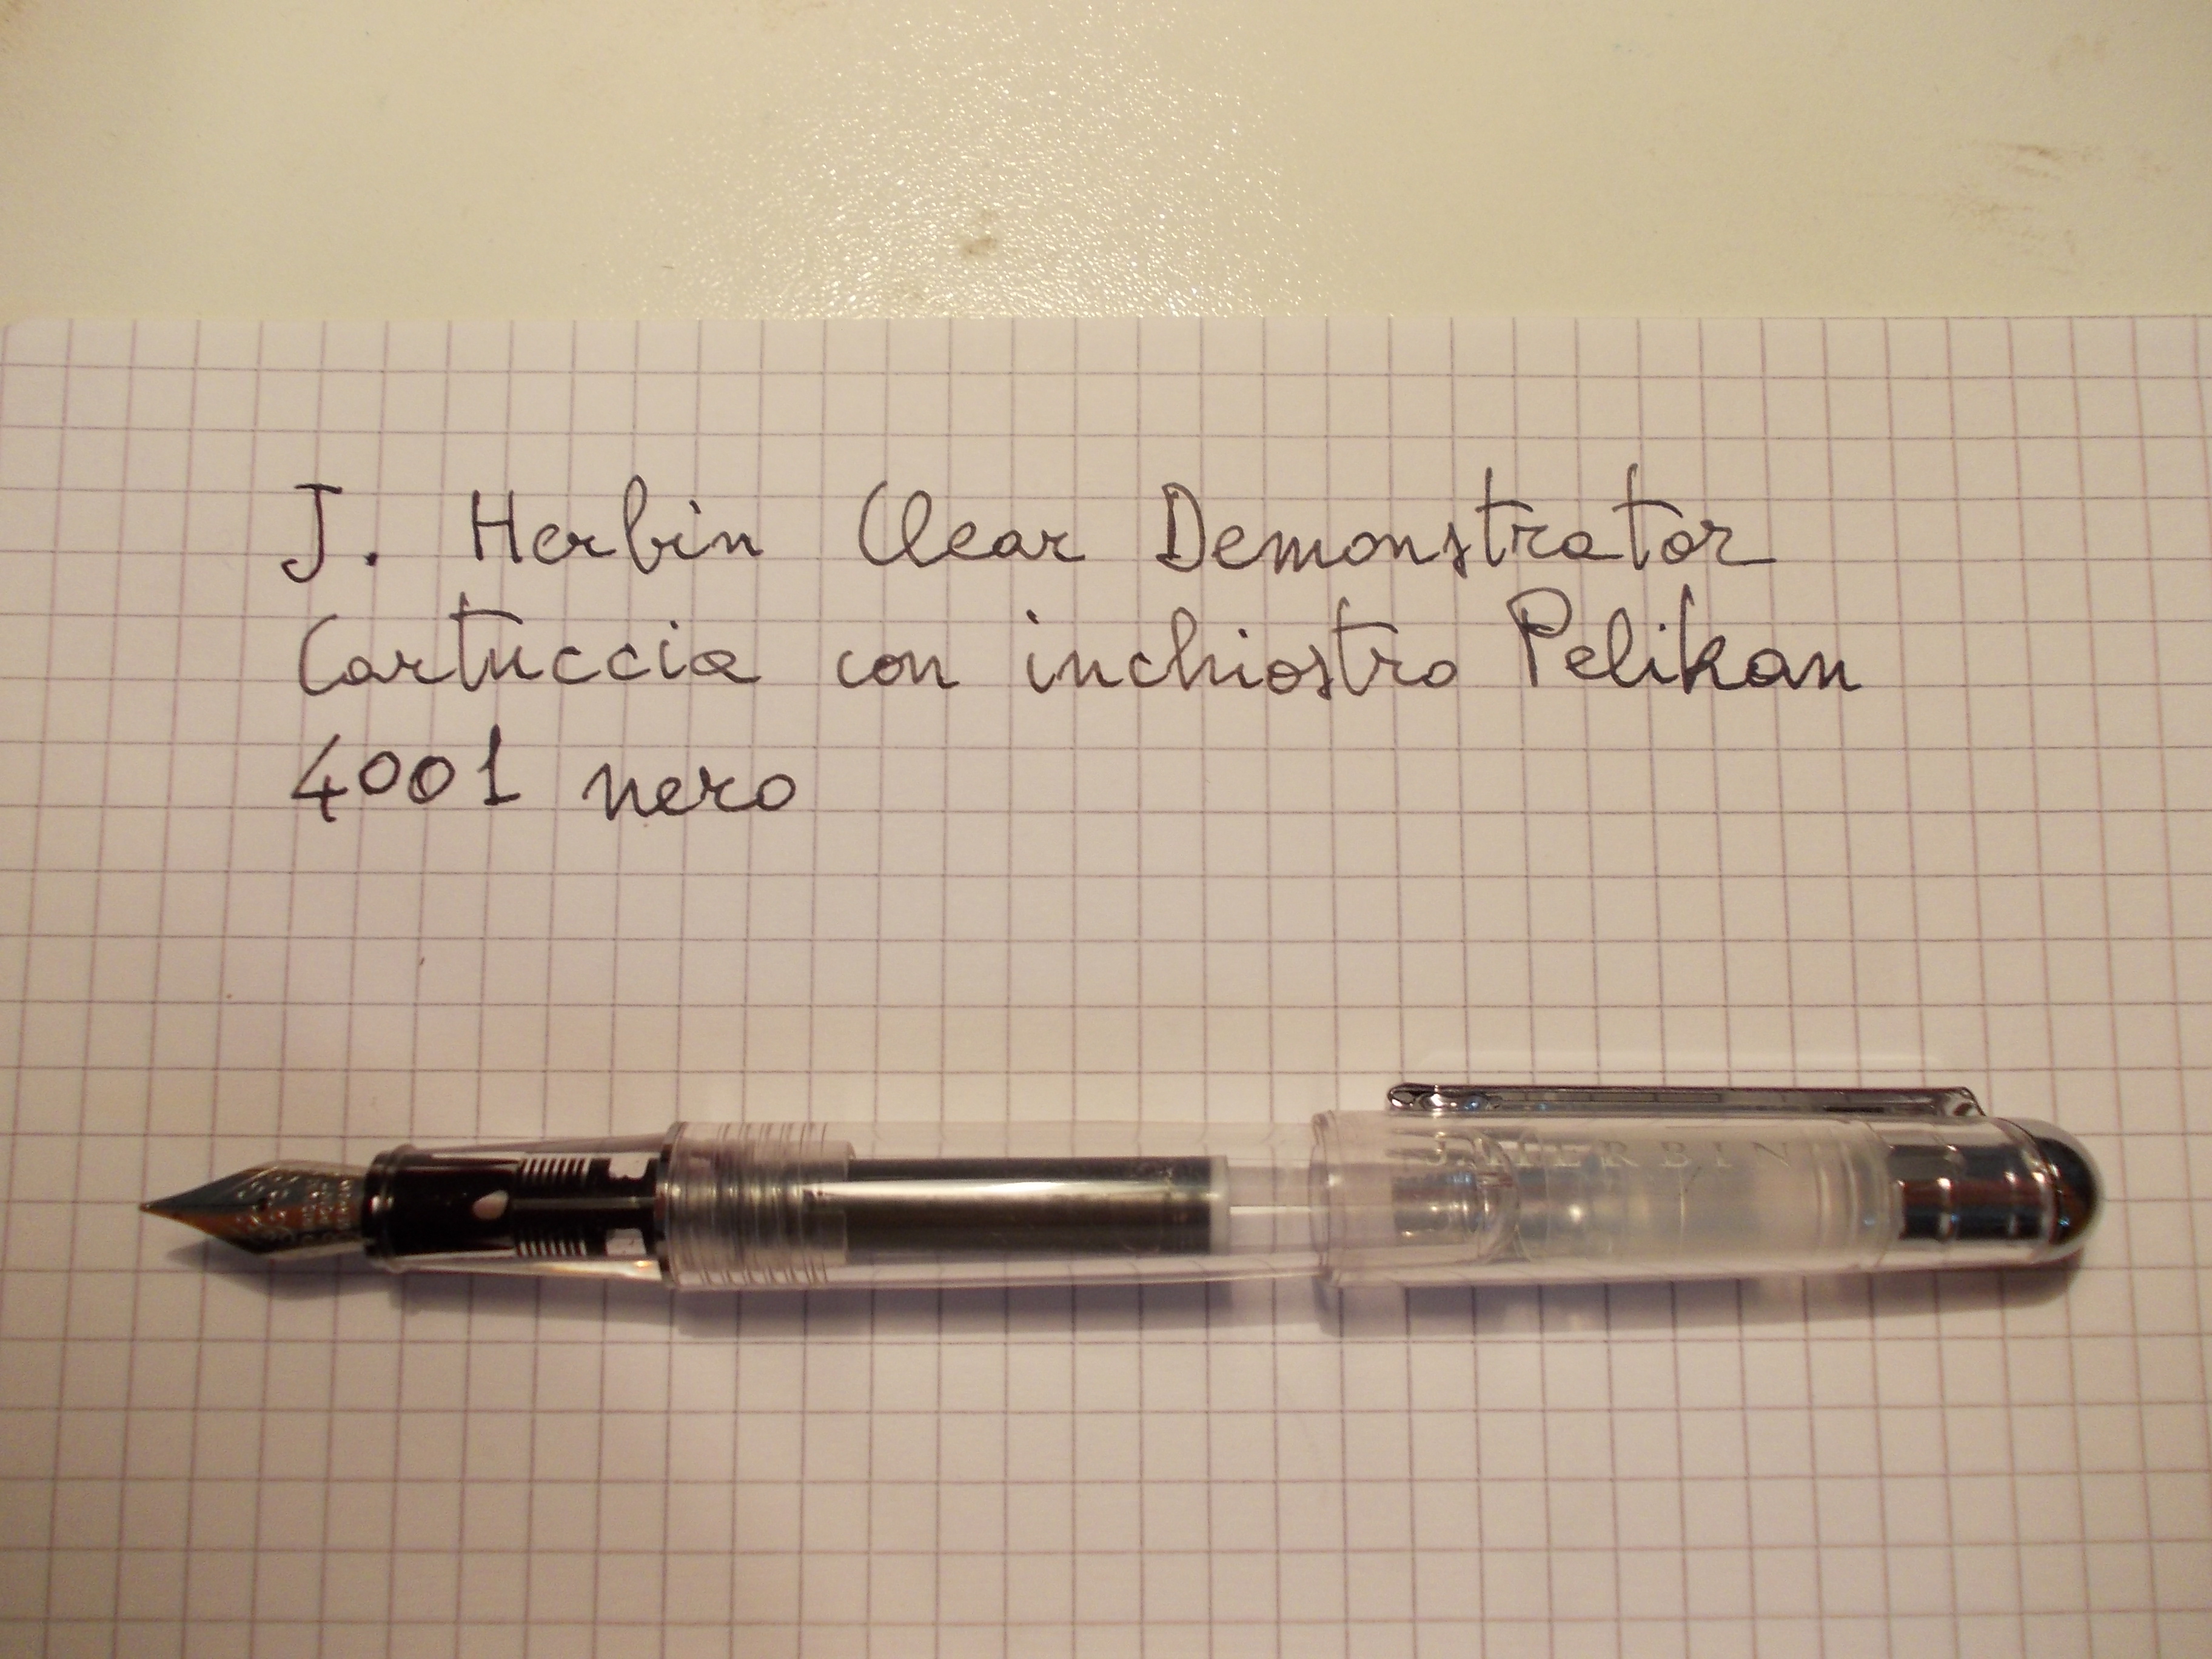 J. Herbin Clear Demonstrator
Cartuccia con inchiostro Pelikan
4001 nero
J. HERBIN